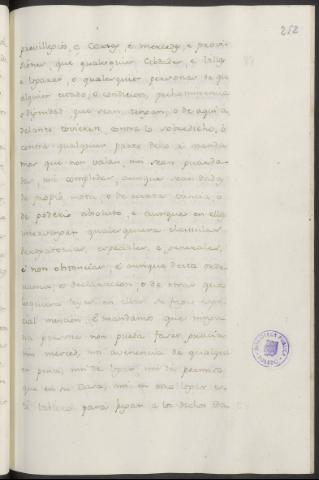 252
previllejos, e Cartas, e mercedes, e provi-
siones, que qualesquier Cibdades, e Villas
e lugares, o qualesquier personas de qual
alquier estado, o condicion, preheminencia
o dignidad que sean tengan, o de aqui a
delante tovieren, contra lo sobredicho, o
contra qualquier parte dello e manda-
mos que non valan, nin sean guarda-
das, nin complidas, aunque sean dadas
de propio motu, o de cierta ciencia, o
de poderio absoluto, e aunque en ellas
intervengan qualesquiera clausulas
derogatorias, especiales, e generales,
e non obstancias, e aunque desta orde-
nanza, o declaracion, o de otras qua-
lesquiera leyes
cial mencion. E mandamos que ninguna
persona non pueda facer, gracia
nin merced, nin avenencia de qualquier
pena, nin de logar, nin dé permiso
que en su Casa, nin en otro logar se
den tableros para jugar a los dichos da-
BIBLIOTECA PUBLICA
TOLEDO